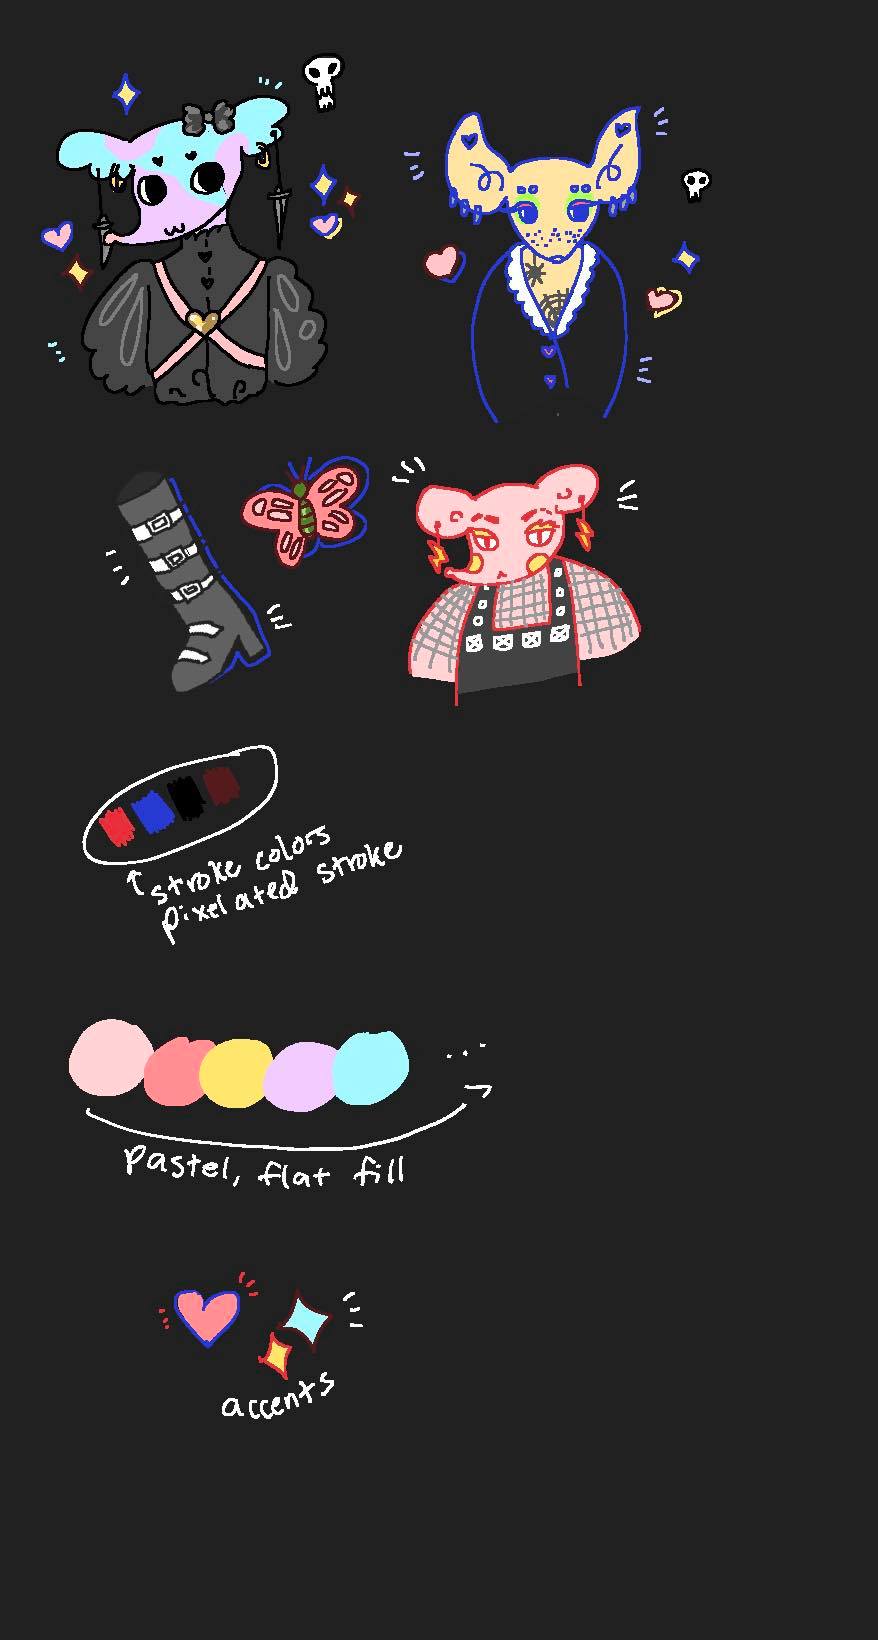 ↑ stroke colors
pixelated stroke
...
pastel, flat fill
accents